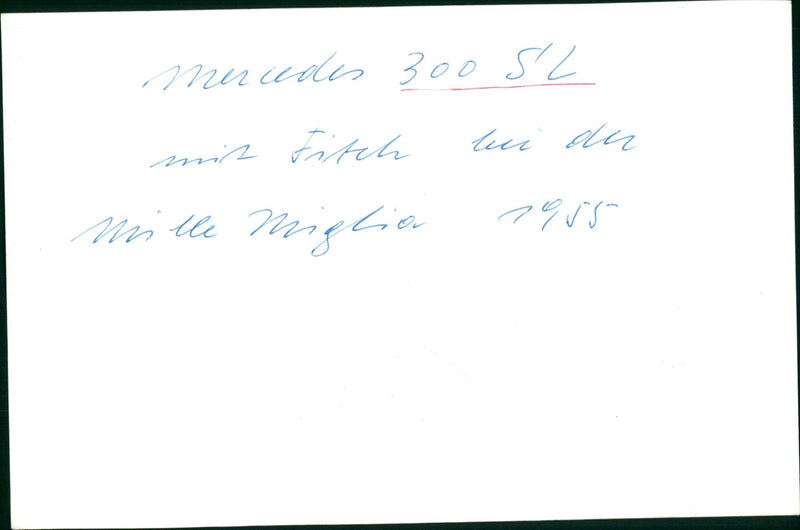 Mercedes 300 SL
mit Fitch bei der
Mille Miglia 1955